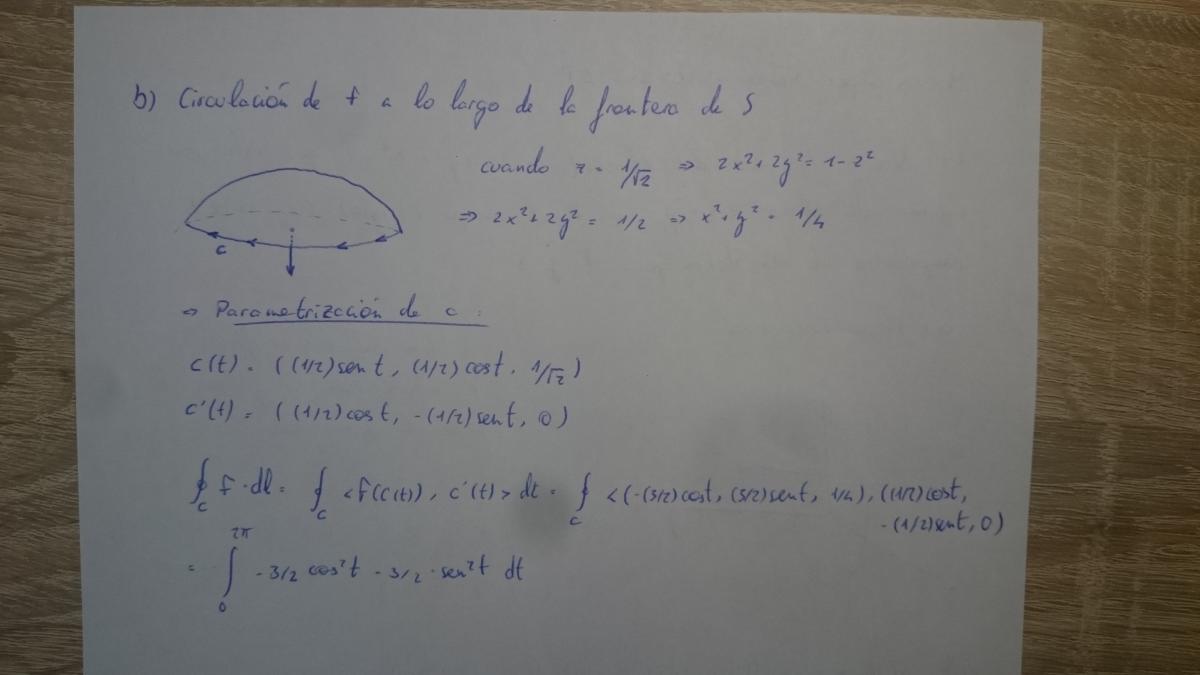 b) Circulación de f a lo largo de la frontera de S
cuando z = 1/√2 ⇒ 2x²+2y² = 1-z²
⇒ 2x²+2y² = 1/2 ⇒ x²+y² = 1/4
c
⇒ Parametrización de c:
c(t) = ((1/2)sen t, (1/2)cos t, 1/√2)
c'(t) = ((1/2)cos t, -(1/2)sen t, 0)
∮_c f·dl = ∮_c <f(c(t)), c'(t)> dt = ∮_c <(-(3/2)cost, (3/2)sent, 1/4), ((1/2)cost,
-(1/2)sent, 0)
= ∫_0^{2π} -3/2 cos²t - 3/2·sen²t dt